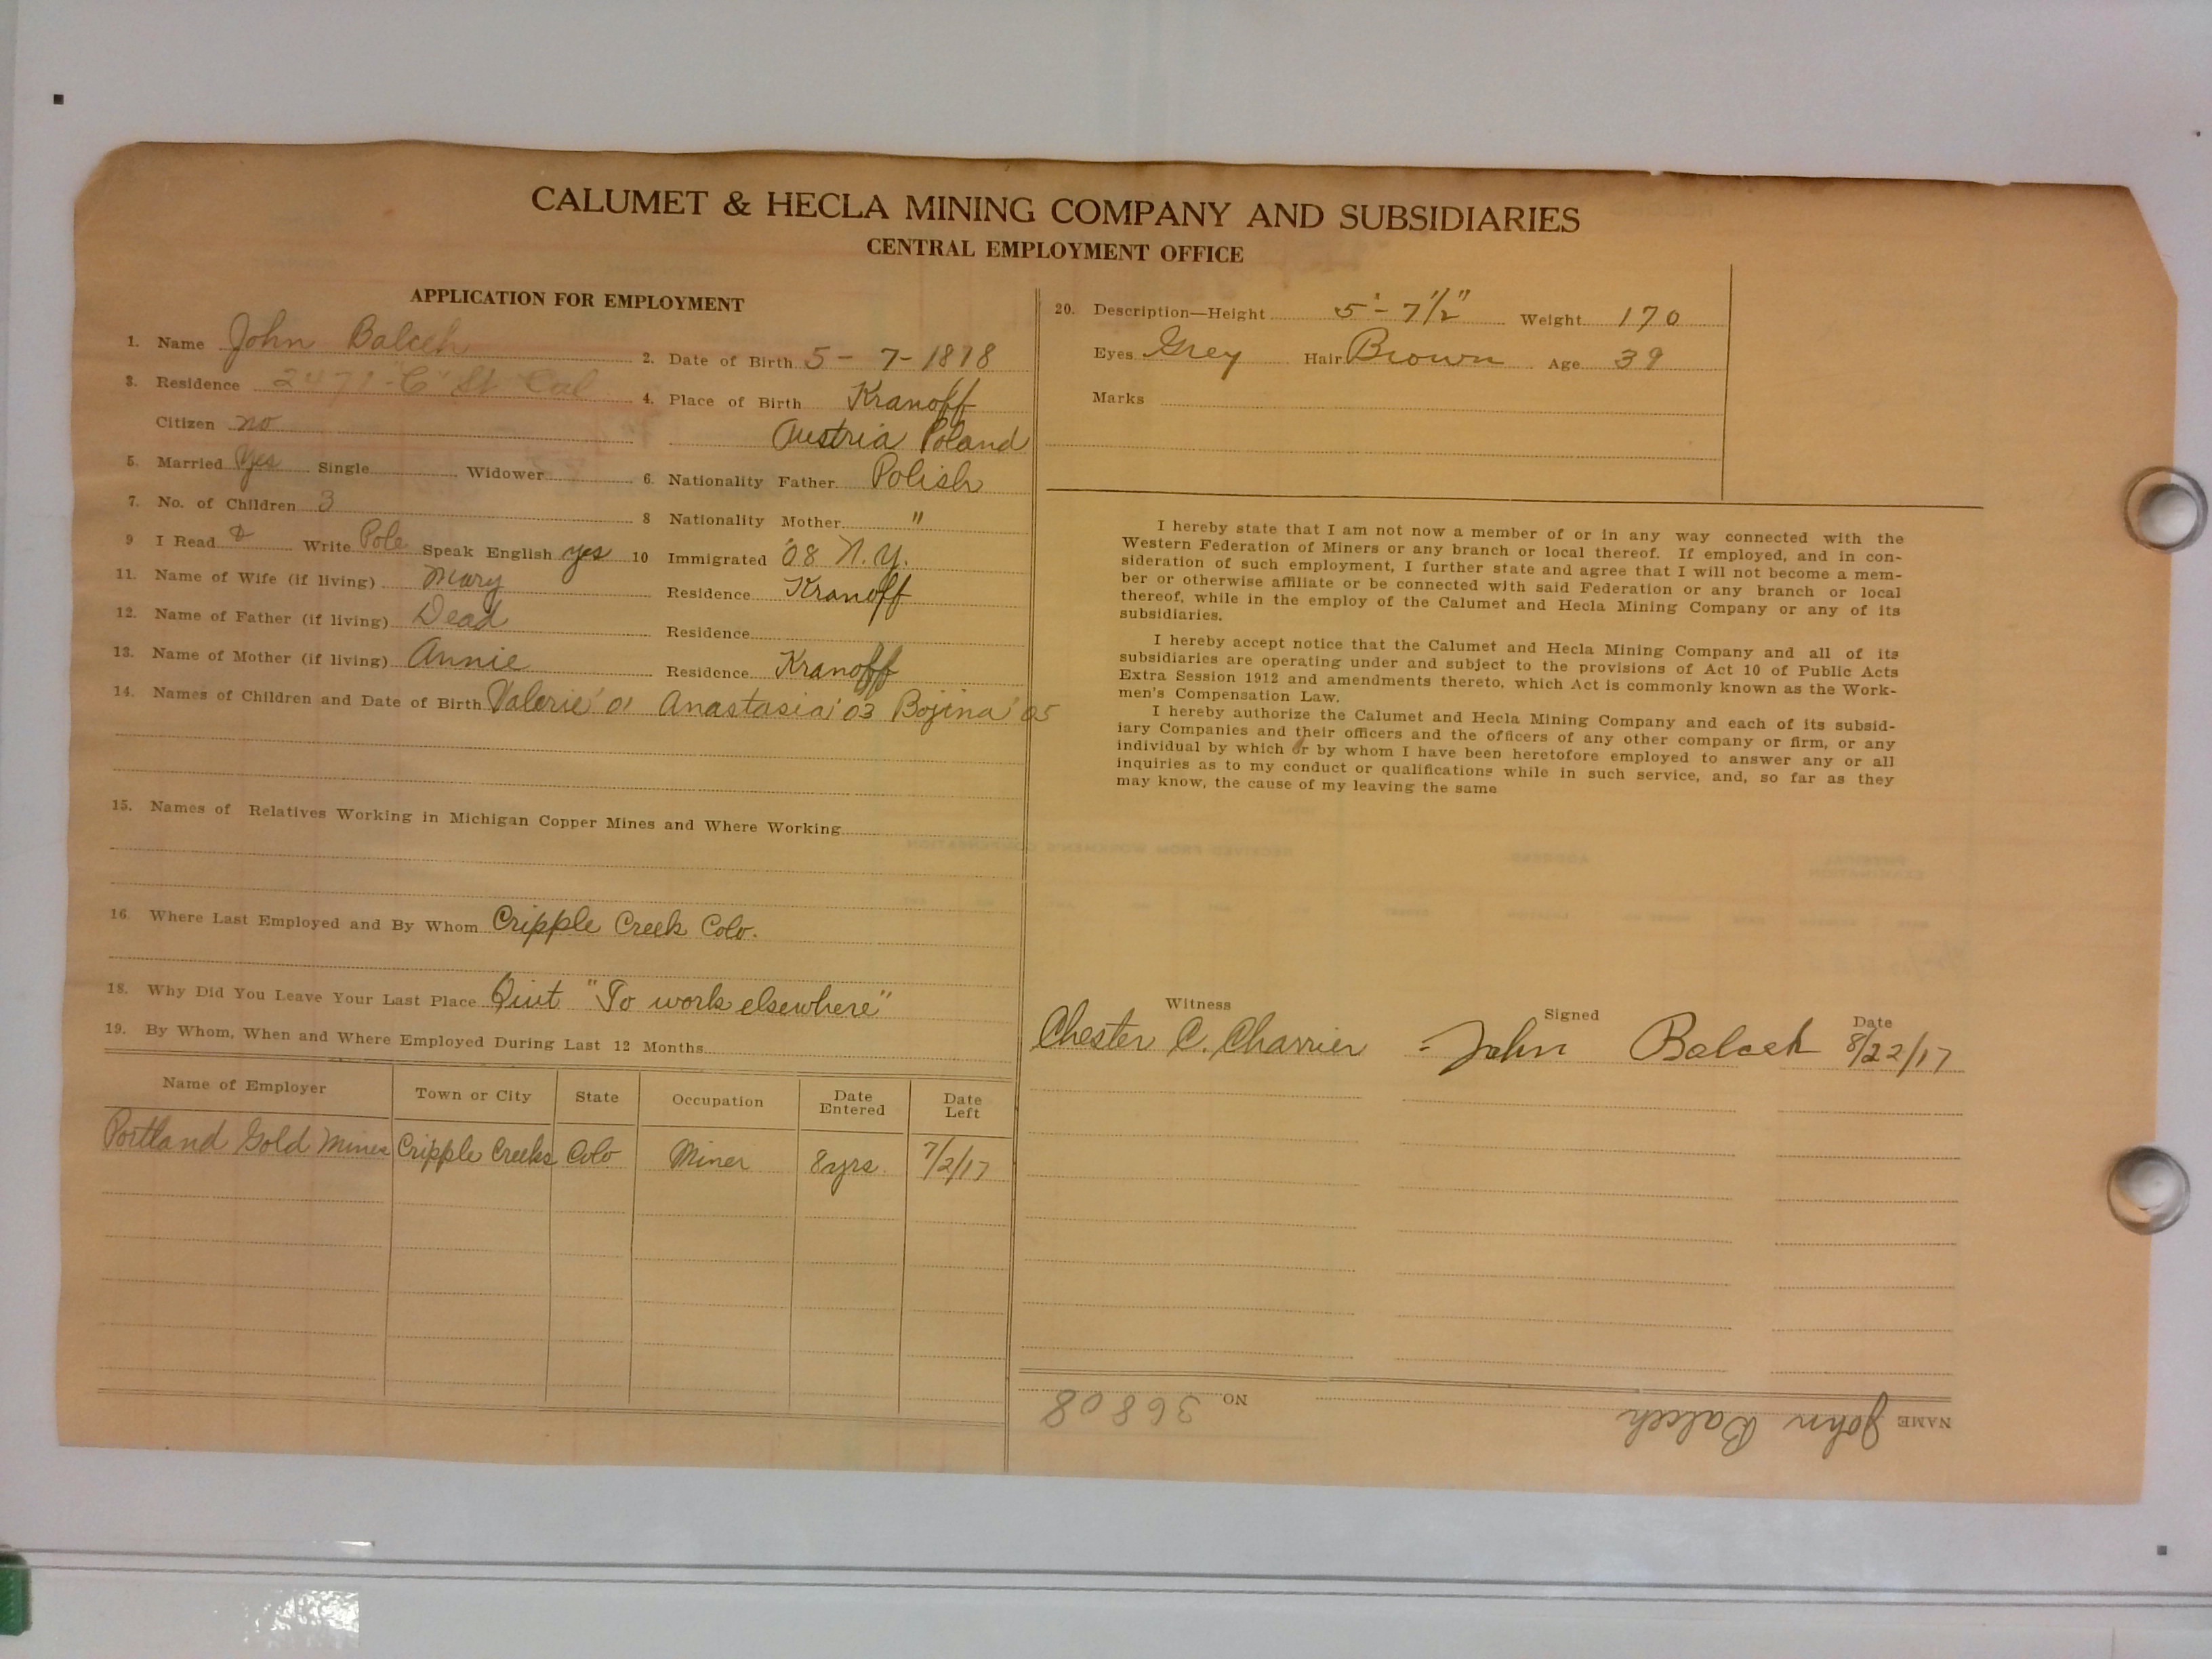 CALUMET & HECLA MINING COMPANY AND SUBSIDIARIES
CENTRAL EMPLOYMENT OFFICE
APPLICATION FOR EMPLOYMENT
1. Name John Balceh
2. Date of Birth 5-7-1878
3. Residence 2471-"C" St Cal
4. Place of Birth Kranoff
Citizen no
Austria Poland
5. Married Yes Single Widower
6. Nationality Father Polish
7. No. of Children 3
8 Nationality Mother "
9 I Read & Write Pole Speak English yes 10 Immigrated '08 N.Y.
11. Name of Wife (if living) Mary Residence Kranoff
12. Name of Father (if living) Dead Residence
13. Name of Mother (if living) Annie Residence Kranoff
14. Names of Children and Date of Birth Valerie '01 Anastasia '03 Bojina '05
15. Names of Relatives Working in Michigan Copper Mines and Where Working
16. Where Last Employed and By Whom Cripple Creek Colo.
18. Why Did You Leave Your Last Place Quit "To work elsewhere"
19. By Whom, When and Where Employed During Last 12 Months
Name of Employer Town or City State Occupation Date Entered Date Left
Portland Gold Mines Cripple Creeks Colo Miner 8yrs. 7/2/17
20. Description—Height 5'-7½" Weight 170
Eyes Grey Hair Brown Age 39
Marks
I hereby state that I am not now a member of or in any way connected with the
Western Federation of Miners or any branch or local thereof. If employed, and in con-
sideration of such employment, I further state and agree that I will not become a mem-
ber or otherwise affiliate or be connected with said Federation or any branch or local
thereof, while in the employ of the Calumet and Hecla Mining Company or any of its
subsidiaries.
I hereby accept notice that the Calumet and Hecla Mining Company and all of its
subsidiaries are operating under and subject to the provisions of Act 10 of Public Acts
Extra Session 1912 and amendments thereto, which Act is commonly known as the Work-
men's Compensation Law.
I hereby authorize the Calumet and Hecla Mining Company and each of its subsid-
iary Companies and their officers and the officers of any other company or firm, or any
individual by which or by whom I have been heretofore employed to answer any or all
inquiries as to my conduct or qualifications while in such service, and, so far as they
may know, the cause of my leaving the same
Witness Signed Date
Chester C. Charrier - John Balceh 8/22/17
NAME John Balceh NO 36808